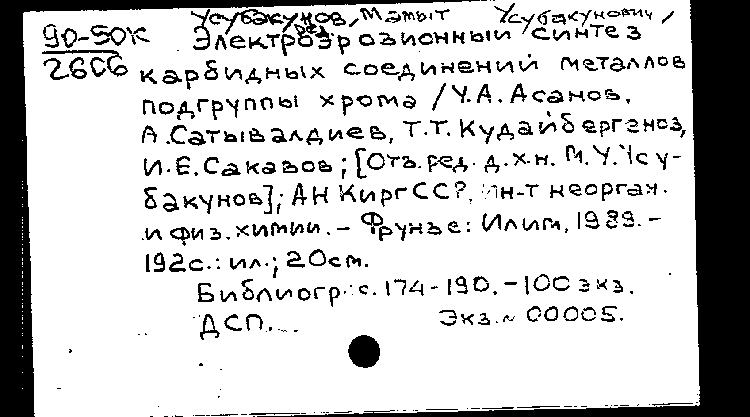 Усубакунов, Мамыт Усубакунович,
ред.
90-50к Электроэрозионный синтез
2606 карбидных соединений металлов
подгруппы хрома / У.А. Асанов,
А.Сатывалдиев, Т.Т. Кудайбергенов,
И.Е. Сакавов; [Отв. ред. д.х.н. М.У. Усу-
бакунов]; АН КиргССР, Ин-т неорган.
и физ. химии. - Фрунзе: Илим, 1989. -
192с.: ил.; 20см.
Библиогр. с. 174-190. - 100 экз.
ДСП... Экз. № 00005.